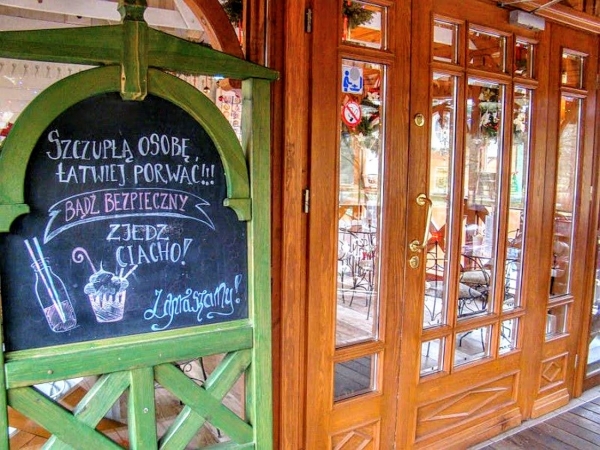 SZCZUPŁĄ OSOBĘ
ŁATWIEJ PORWAĆ!!!
BĄDŹ BEZPIECZNY
ZJEDZ
CIACHO!
Zapraszamy!